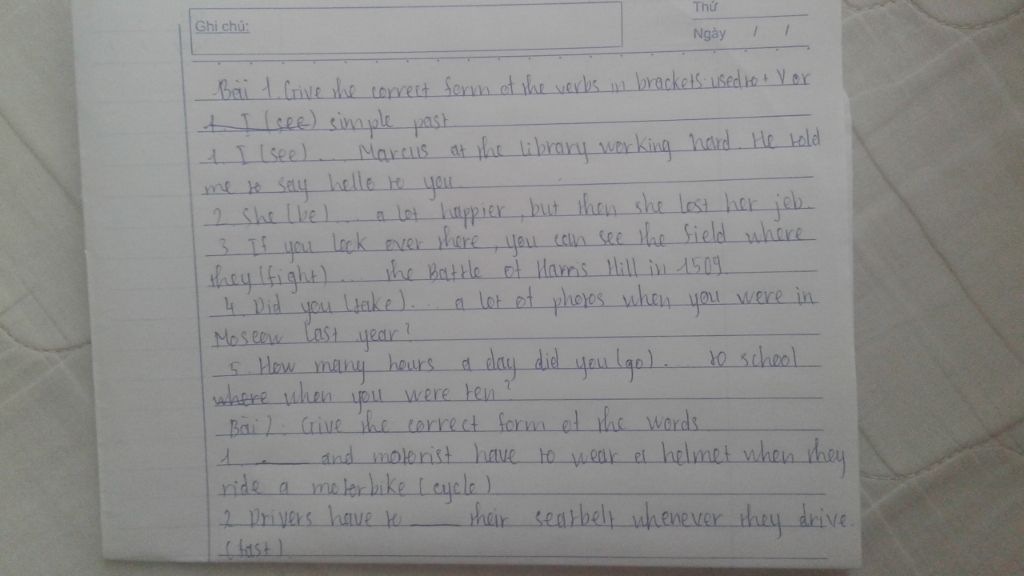 Ghi chú:
Thứ
Ngày / /
Bài 1. Give the correct form of the verbs in brackets: used to + V or
1. I (see) simple past
1. I (see)... Marcus at the library working hard. He told
me to say hello to you.
2 She (be)... a lot happier, but then she lost her job
3 If you look over there, you can see the field where
they (fight)... the Battle of Harris Hill in 1509
4. Did you (take)... a lot of photos when you were in
Moscow last year?
5. How many hours a day did you (go)... to school
where when you were ten?
Bài 2. Give the correct form of the words
1. ____ and motorist have to wear a helmet when they
ride a motorbike (cycle)
2 Drivers have to ____ their seatbelt whenever they drive.
(fast)